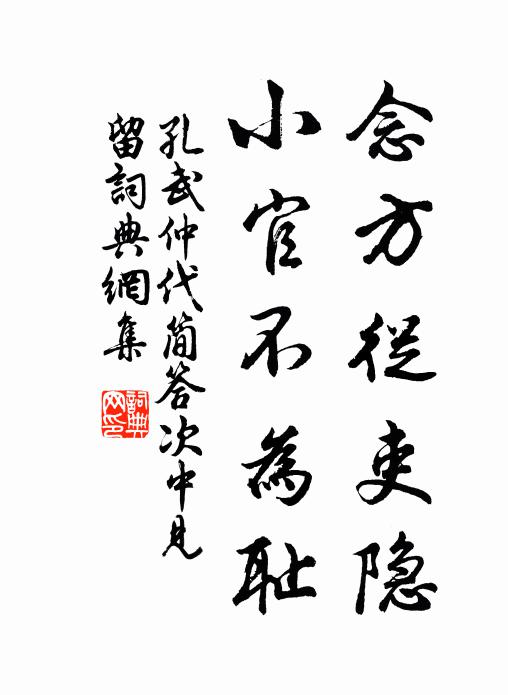 念方從吏隐
小官不為耻
孔武仲代简答次中見
留詞典網集
詞典网印